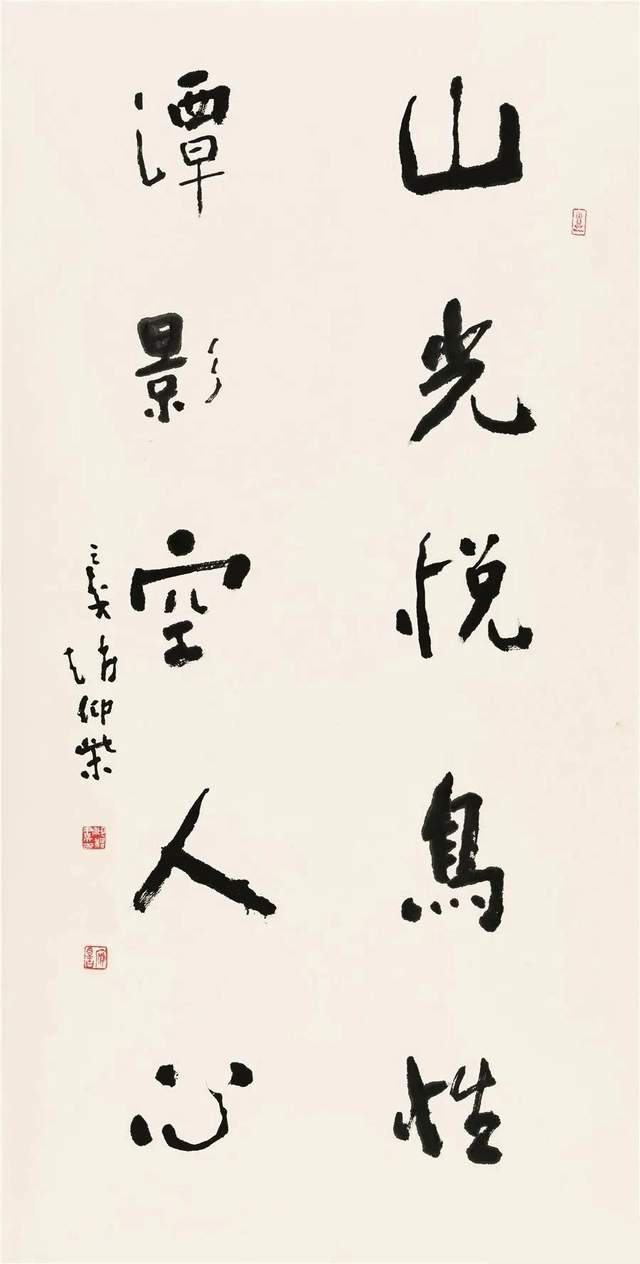 山光悦鳥性
潭影空人心
趙仰柴